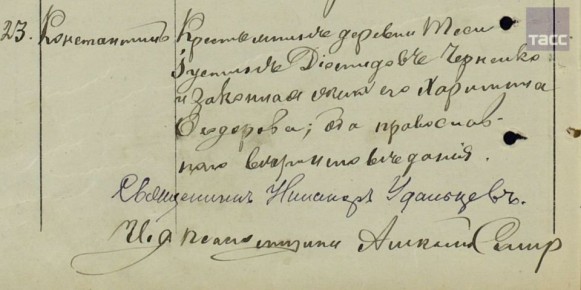 ТАСС
23. Константинъ Крестьянинъ деревни Теси
Іустинъ Діомидовъ Черненко
и законная жена его Харитина
Ѳеодорова; оба православ-
наго вѣроисповѣданія.
Священникъ Никаноръ Удальцевъ.
И. д. псаломщика